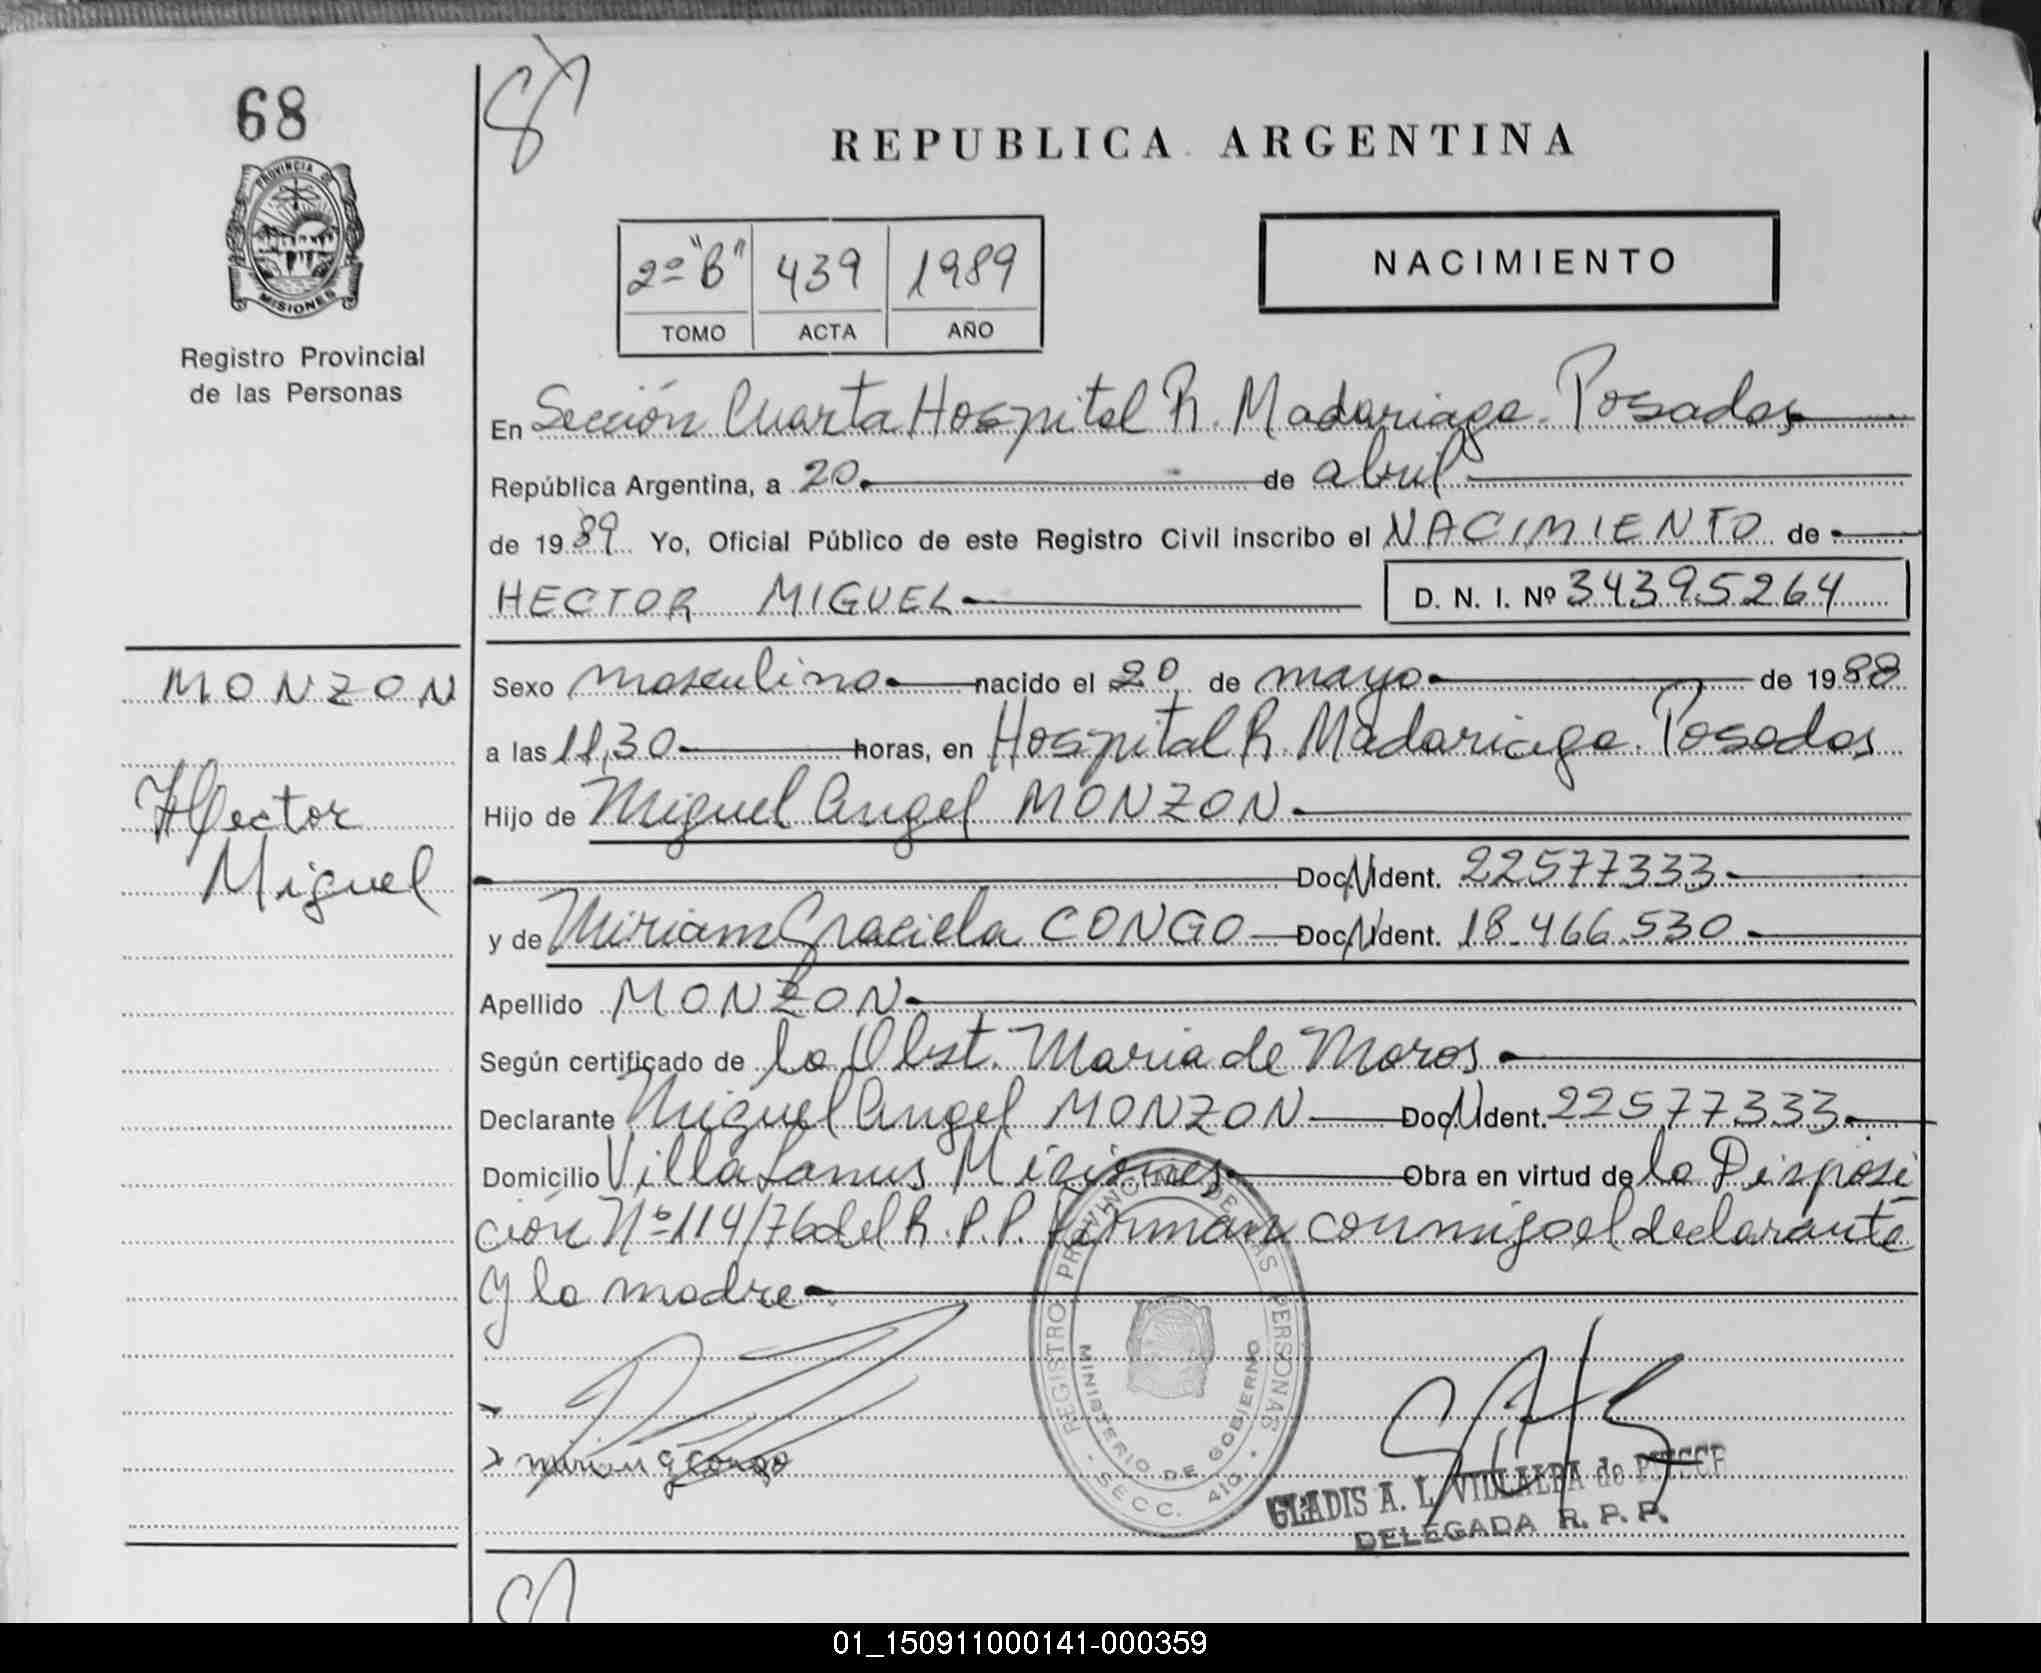 68
PROVINCIA DE
MISIONES
Registro Provincial
de las Personas
REPUBLICA ARGENTINA
2º "B" 439 1989
TOMO ACTA AÑO
NACIMIENTO
En Sección Cuarta Hospital R. Madariaga. Posadas
República Argentina, a 20 de abril
de 1989 Yo, Oficial Público de este Registro Civil inscribo el NACIMIENTO de
HECTOR MIGUEL D. N. I. Nº 34395264
MONZON
Hector
Miguel
Sexo masculino nacido el 20 de mayo de 1988
a las 11,30 horas, en Hospital R. Madariaga. Posadas
Hijo de Miguel Angel MONZON
Doc. N Ident. 22577333
y de Miriam Graciela CONGO Doc. N Ident. 18.466.530
Apellido MONZON
Según certificado de la Obst. Maria de Moros
Declarante Miguel Angel MONZON Doc. N Ident. 22577333
Domicilio Villa Lanus Misiones Obra en virtud de la Disposi
ción Nº 114/76 del R.P.P. Firman conmigo el declarante
y la madre
REGISTRO PROVINCIAL DE LAS PERSONAS
MINISTERIO DE GOBIERNO
SECC. 410
Congo
GLADIS A. L. VILLALBA de
DELEGADA R. P. P.
01_150911000141-000359